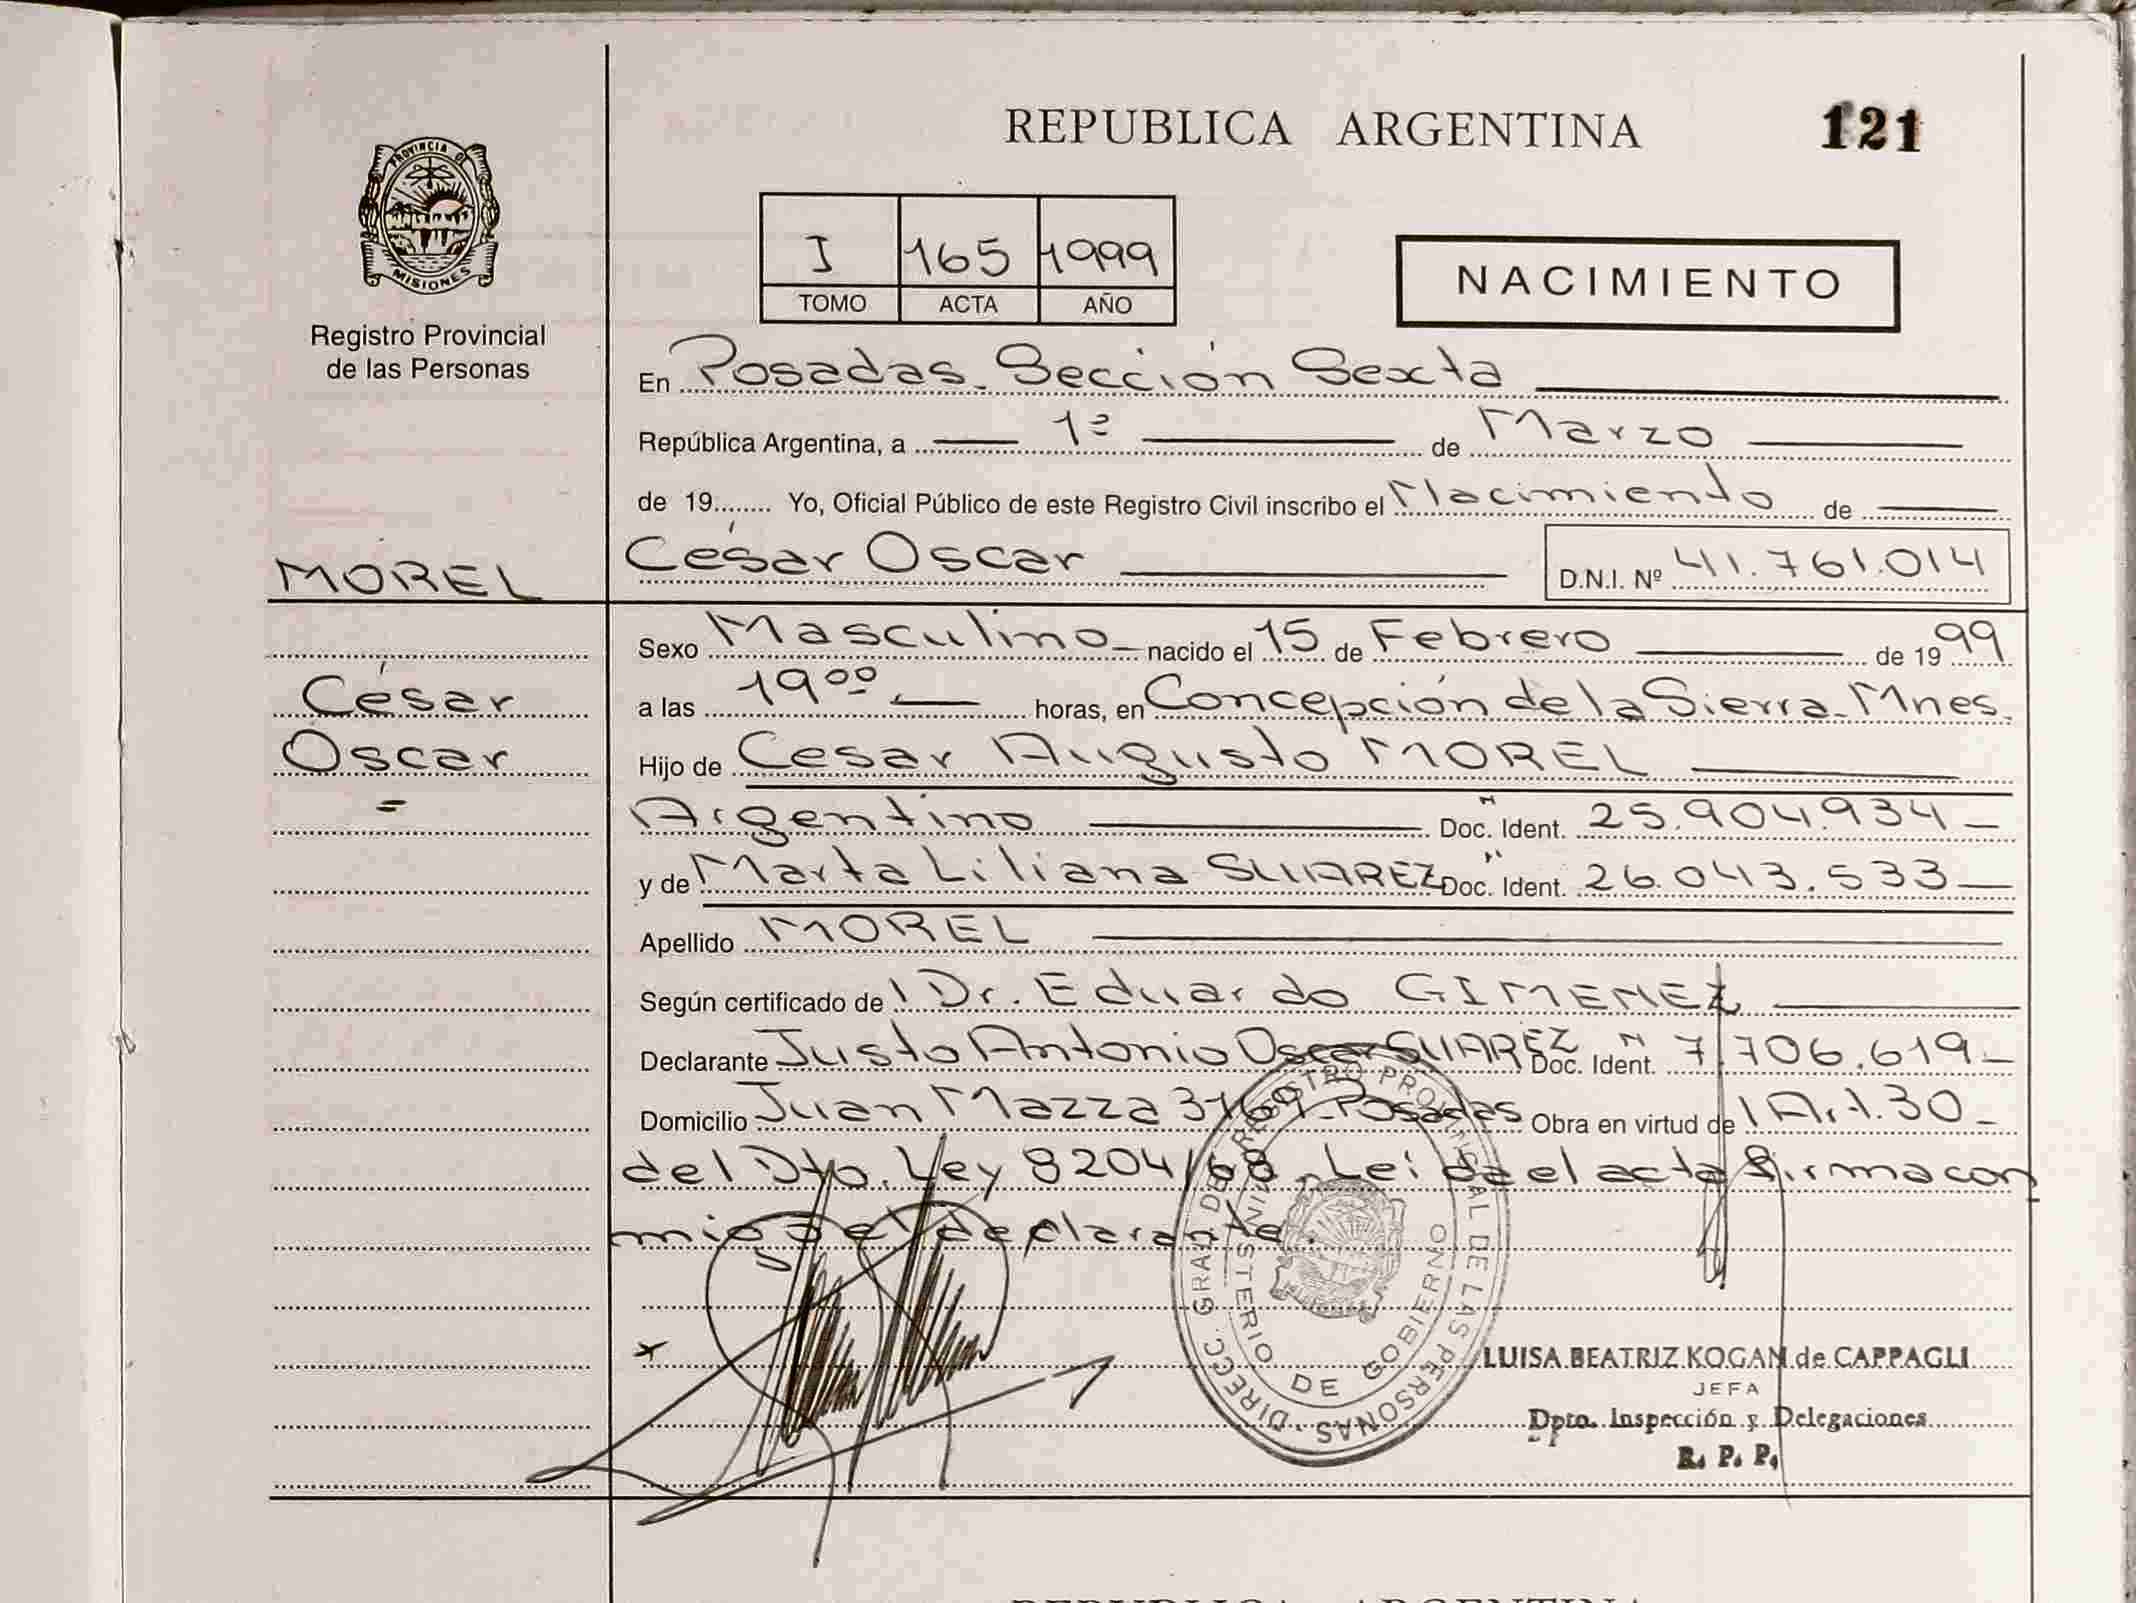 REPUBLICA ARGENTINA
121
PROVINCIA DE
MISIONES
Registro Provincial
de las Personas
I 165 1999
TOMO ACTA AÑO
NACIMIENTO
En Posadas. Sección Sexta
República Argentina, a 1º de Marzo
de 19........ Yo, Oficial Público de este Registro Civil inscribo el Nacimiento de
MOREL
César Oscar D.N.I. Nº 41.761.014
Sexo Masculino nacido el 15 de Febrero de 1999
César
a las 19⁰⁰ horas, en Concepción de la Sierra. Mnes.
Oscar
Hijo de Cesar Augusto MOREL
Argentino Doc. Ident. 25.904.934
y de Marta Liliana SUAREZ Doc. Ident. 26.043.533
Apellido MOREL
Según certificado de l Dr. Eduardo GIMENEZ
Declarante Justo Antonio Oscar SUAREZ Doc. Ident. 7.706.619
Domicilio Juan Mazza 3169 Posadas Obra en virtud de l Art. 30
del Dto. Ley 8204/68. Leída el acta firma con
migo el declarante.
DIRECC. GRAL. DEL REGISTRO PROVINCIAL DE LAS PERSONAS
MINISTERIO DE GOBIERNO
LUISA BEATRIZ KOGAN de CAPPAGLI
JEFA
Dpto. Inspección y Delegaciones
R. P. P.
REPUBLICA ARGENTINA